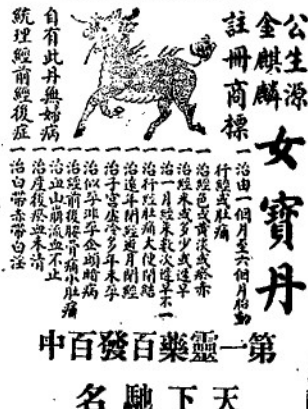 公生源
金麒麟
註冊商標
女寶丹
自有此丹無婦病
統理經前經後症
一治由一個月至六個月胎動
行經或肚痛
一治經色或黃淡或瘀赤
一治經來或多少或遲早
一治一月經來數次遲早不一
一治行經肚痛大便閉結
一治遠年閉經逐月閉經
一治子宮虛冷多年未孕
一治似孕非孕企頭暗病
一治經前後腰骨痛小肚痛
一治血山崩流血不止
一治產後瘀血未清
一治白帶赤帶白淫
第一靈藥百發百中
天下馳名